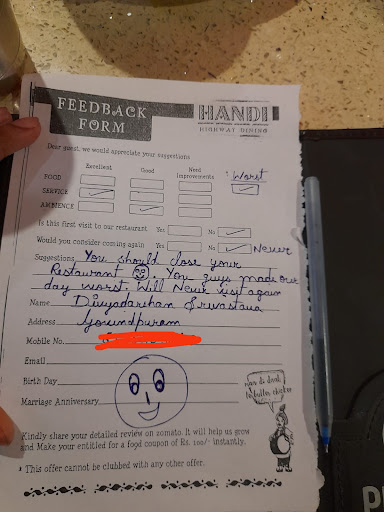 FEEDBACK
FORM
HANDI
HIGHWAY DINING
Dear guest, we would appreciate your suggestions
Excellent Good Need Improvements Worst
FOOD
SERVICE
AMBIENCE
Is this first visit to our restaurant Yes No
Would you consider coming again Yes No Never
Suggestions You should close your
Restaurant. You guys made our
day worst. Will Never visit again
Name Divyadarshan Srivastava
Address Govindpuram
Mobile No.
Email
Birth Day
Marriage Anniversary
Kindly share your detailed review on zomato. It will help us grow
and Make your entitled for a food coupon of Rs. 100/- instantly.
• This offer cannot be clubbed with any other offer.